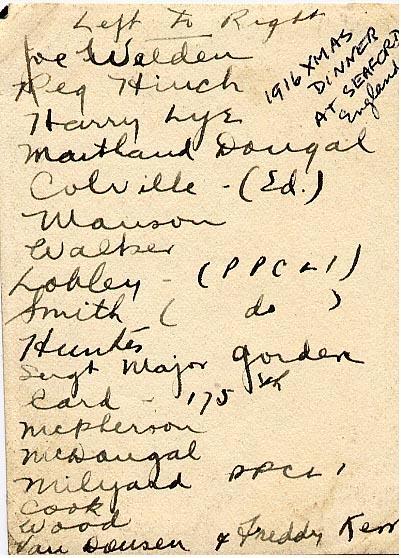 Left To Right
Joe Welden
Reg Hinch
Harry Lye
Maitland Dougal
Colville - (Ed.)
Manson
Walker
Lobley - (PPCLI)
Smith ( do )
Hunter
Sergt Major Gorden
Card - 175th
McPherson
McDougal
Milyard PPCLI
Cook
Wood
Van Dousen & Freddy Kerr
1916 XMAS
DINNER
AT SEAFORD
England